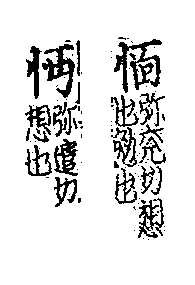 愐弥兖切想
也勉也
㥝弥遣切
想也